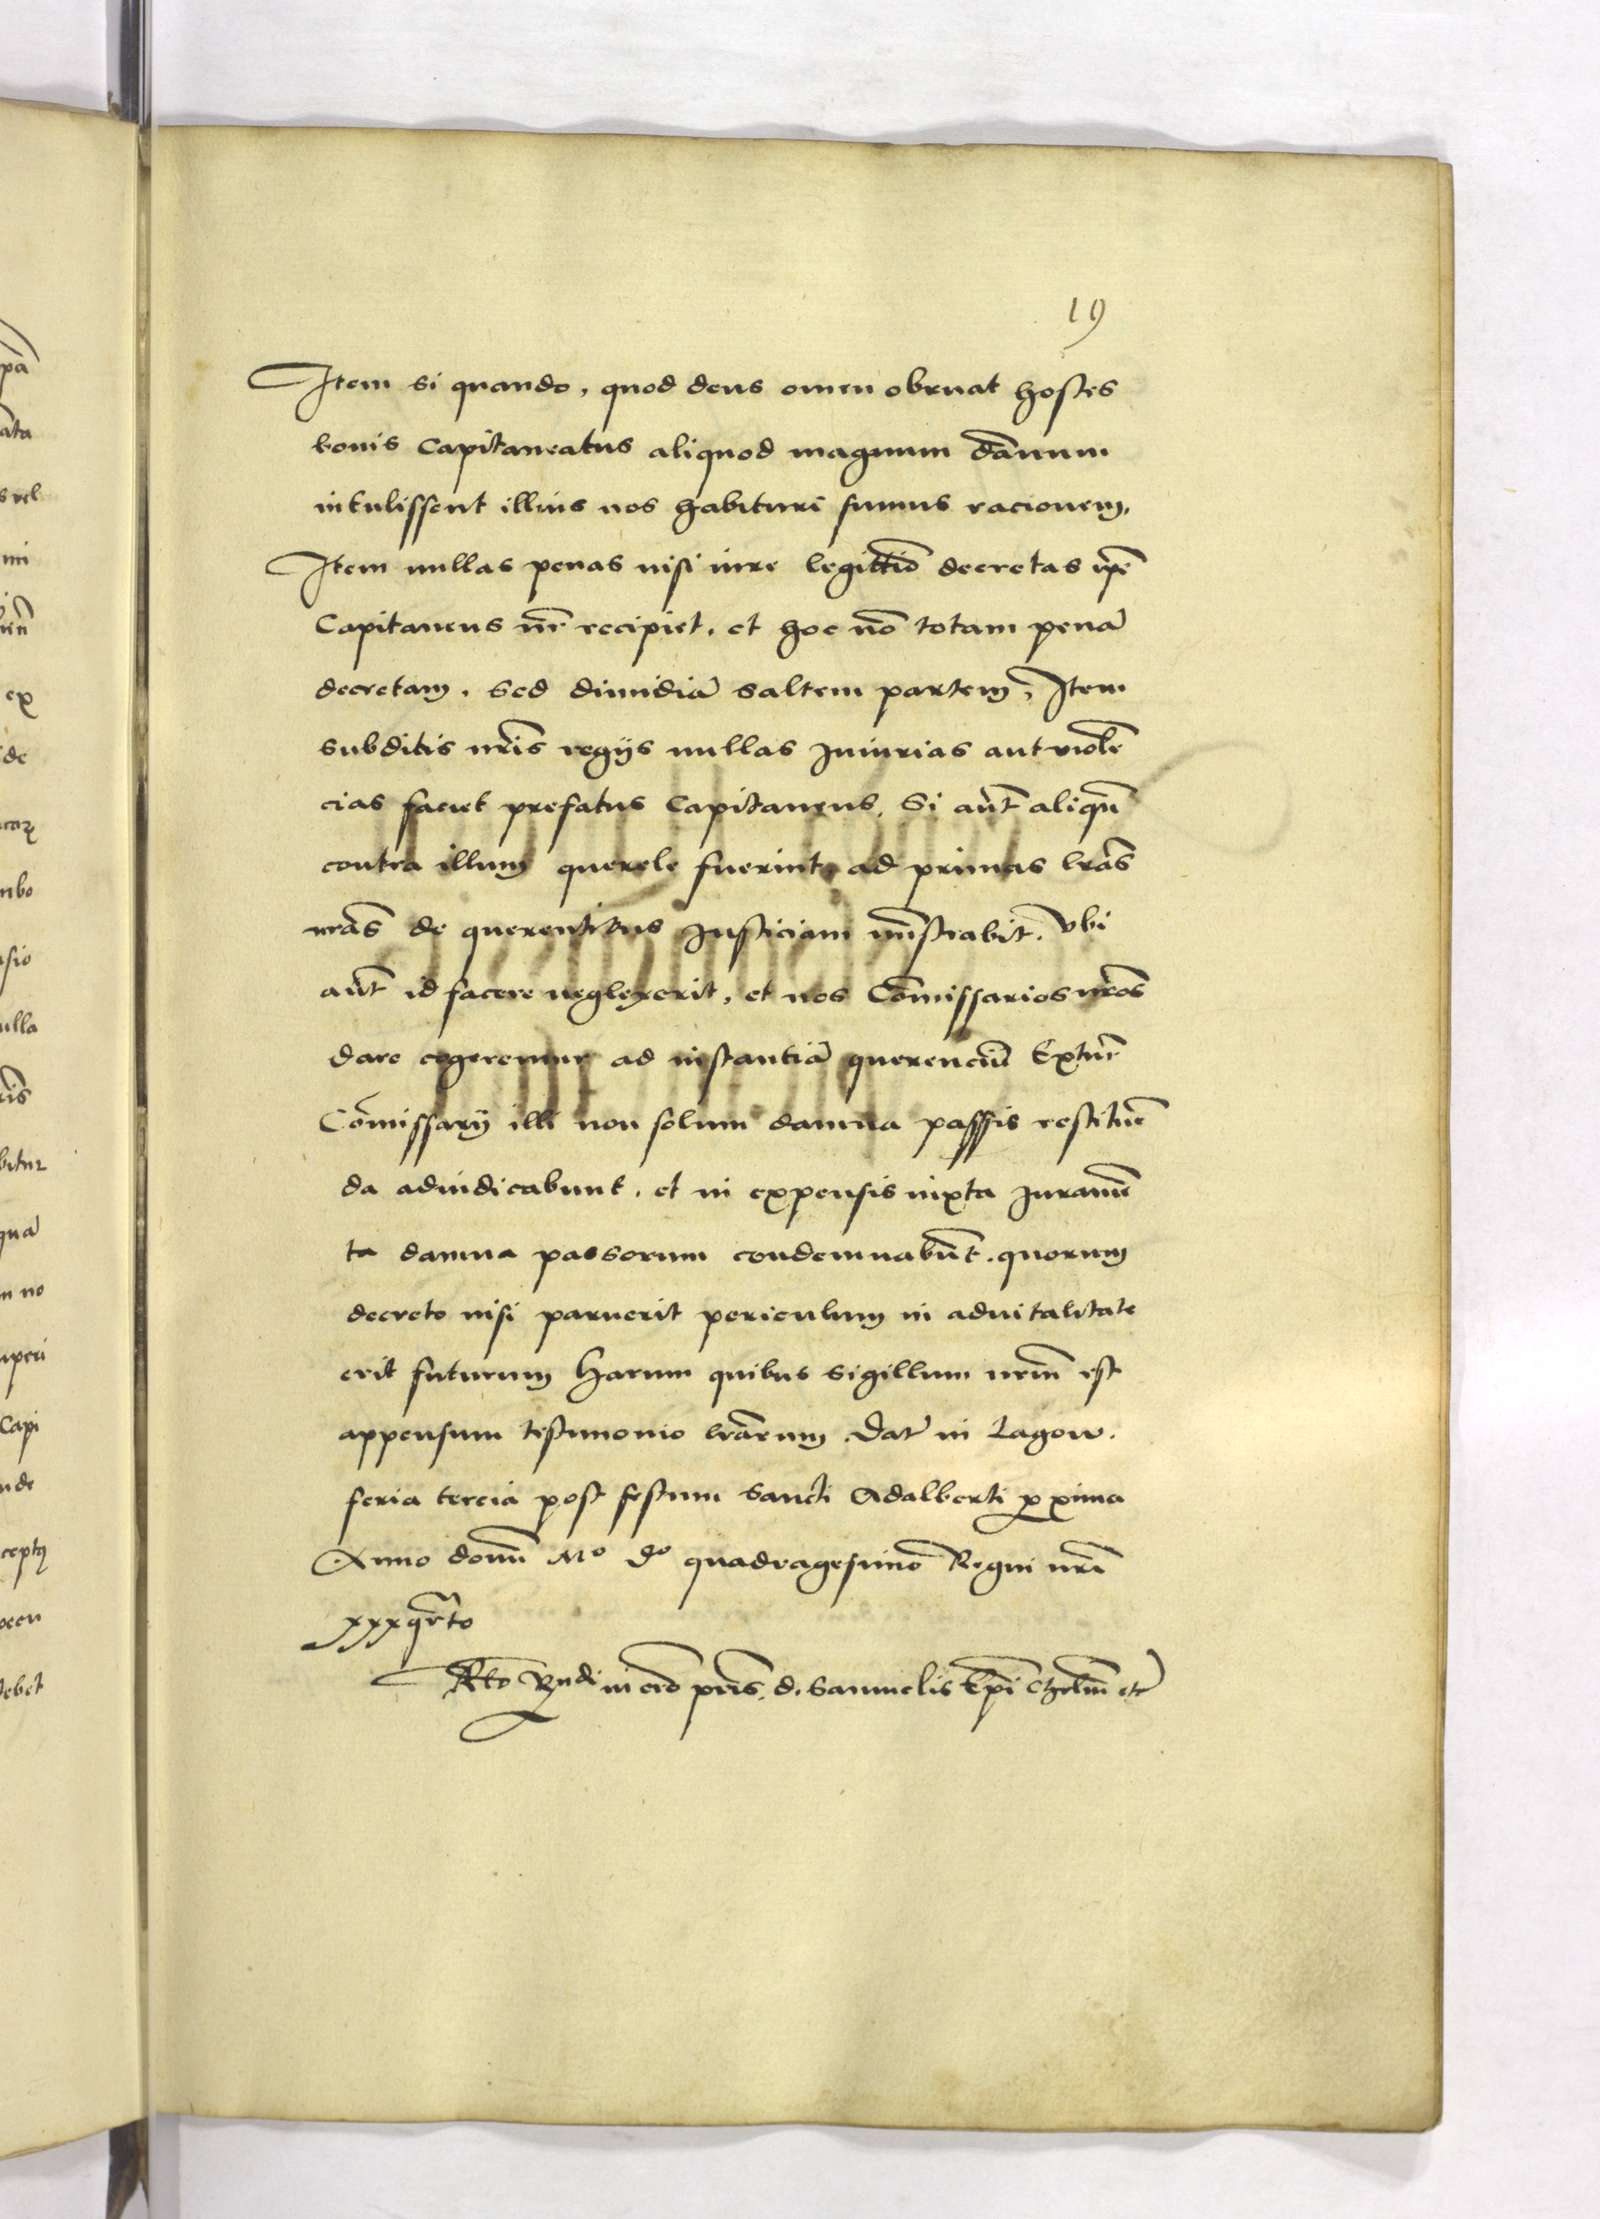 19
Item si quando, quod deus omen obruat hostes
bonis Capitaneatus aliquod magnum da̅num
intulissent illius nos habituri sumus racionem.
Item nullas penas nisi iure legittio̅ decretas ip̅e
Capitaneus nr̅ recipiet, et hoc no̅ totam pena̅
decretam, sed dimidia̅ saltem partem, Item
subditis nr̅is regijs nullas Iniurias aut viole̅
cias faciet prefatus Capitaneus, Si aut̅ aliqu̅
contra illum querele fuerint, ad primas lr̅as
nr̅as de querentibus Iusticiam mi̅strabit. Vbi
aut̅ id facere neglexerit, et nos Co̅missarios nr̅os
dare cogeremur ad instantia̅ querenciu̅ Extu̅c
Co̅missarij illi non solum damna passis restitue̅
da adiudicabunt, et in expensis iuxta Iurame̅
ta damna passorum condemnabu̅t. quorum
decreto nisi paruerit periculum in aduitalitate
erit futurum Harum quibus sigillum nr̅m est
appensum testimonio lr̅arum. Dat̅ in Lagow.
feria tercia post festum Sancti Adalberti proxima
Anno domi̅ Mo do quadragesimo Regni nr̅i
xxxqrto
R̅to Rndi in cr̅o pr̅is. d. Samuelis Ep̅i Chelm̅ etc̅
ex
de
Capi